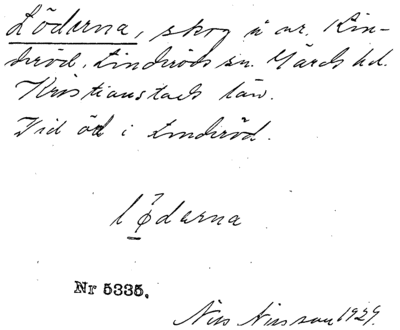 Löderna, skog å nr. Lin-
deröd, Linderöds sn. Gärds hd.
Kristianstads län.
Vid öd i Linderöd.
lødarna
Nr 5335.
Nils Nilsson 1929.